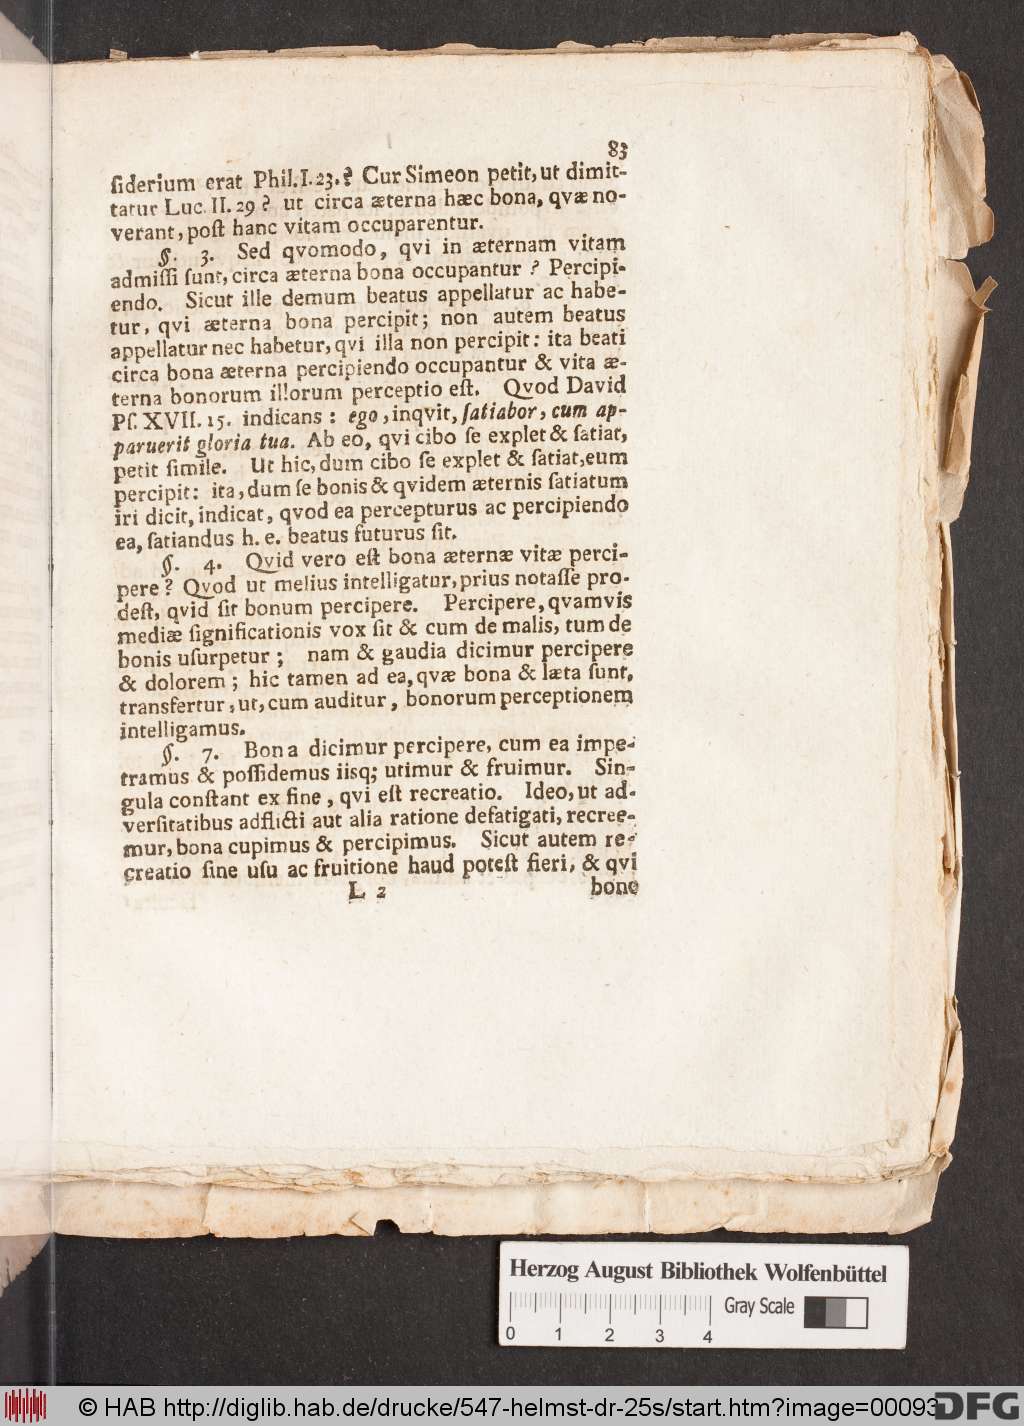 83
ſiderium erat Phil. I. 23.? Cur Simeon petit, ut dimit-
tatur Luc. II. 29? ut circa æterna hæc bona, qvæ no-
verant, poſt hanc vitam occuparentur.
§. 3. Sed qvomodo, qvi in æternam vitam
admiſſi ſunt, circa æterna bona occupantur? Percipi-
endo. Sicut ille demum beatus appellatur ac habe-
tur, qvi æterna bona percipit; non autem beatus
appellatur nec habetur, qvi illa non percipit: ita beati
circa bona æterna percipiendo occupantur & vita æ-
terna bonorum illorum perceptio eſt. Qvod David
Pſ. XVII. 15. indicans: ego, inqvit, ſatiabor, cum ap-
paruerit gloria tua. Ab eo, qvi cibo ſe explet & ſatiat,
petit ſimile. Ut hic, dum cibo ſe explet & ſatiat, eum
percipit: ita, dum ſe bonis & qvidem æternis ſatiatum
iri dicit, indicat, qvod ea percepturus ac percipiendo
ea, ſatiandus h. e. beatus futurus ſit.
§. 4. Qvid vero eſt bona æternæ vitæ perci-
pere? Qvod ut melius intelligatur, prius notaſſe pro-
deſt, qvid ſit bonum percipere. Percipere, qvamvis
mediæ ſignificationis vox ſit & cum de malis, tum de
bonis uſurpetur; nam & gaudia dicimur percipere
& dolorem; hic tamen ad ea, qvæ bona & læta ſunt,
transfertur, ut, cum auditur, bonorum perceptionem
intelligamus.
§. 7. Bona dicimur percipere, cum ea impe-
tramus & poſſidemus iisq; utimur & fruimur. Sin-
gula conſtant ex fine, qvi eſt recreatio. Ideo, ut ad-
verſitatibus adflicti aut alia ratione defatigati, recree-
mur, bona cupimus & percipimus. Sicut autem re-
creatio ſine uſu ac fruitione haud poteſt fieri, & qvi
L 2 bono
Herzog August Bibliothek Wolfenbüttel
0 1 2 3 4 Gray Scale
© HAB http://diglib.hab.de/drucke/547-helmst-dr-25s/start.htm?image=00093
DFG